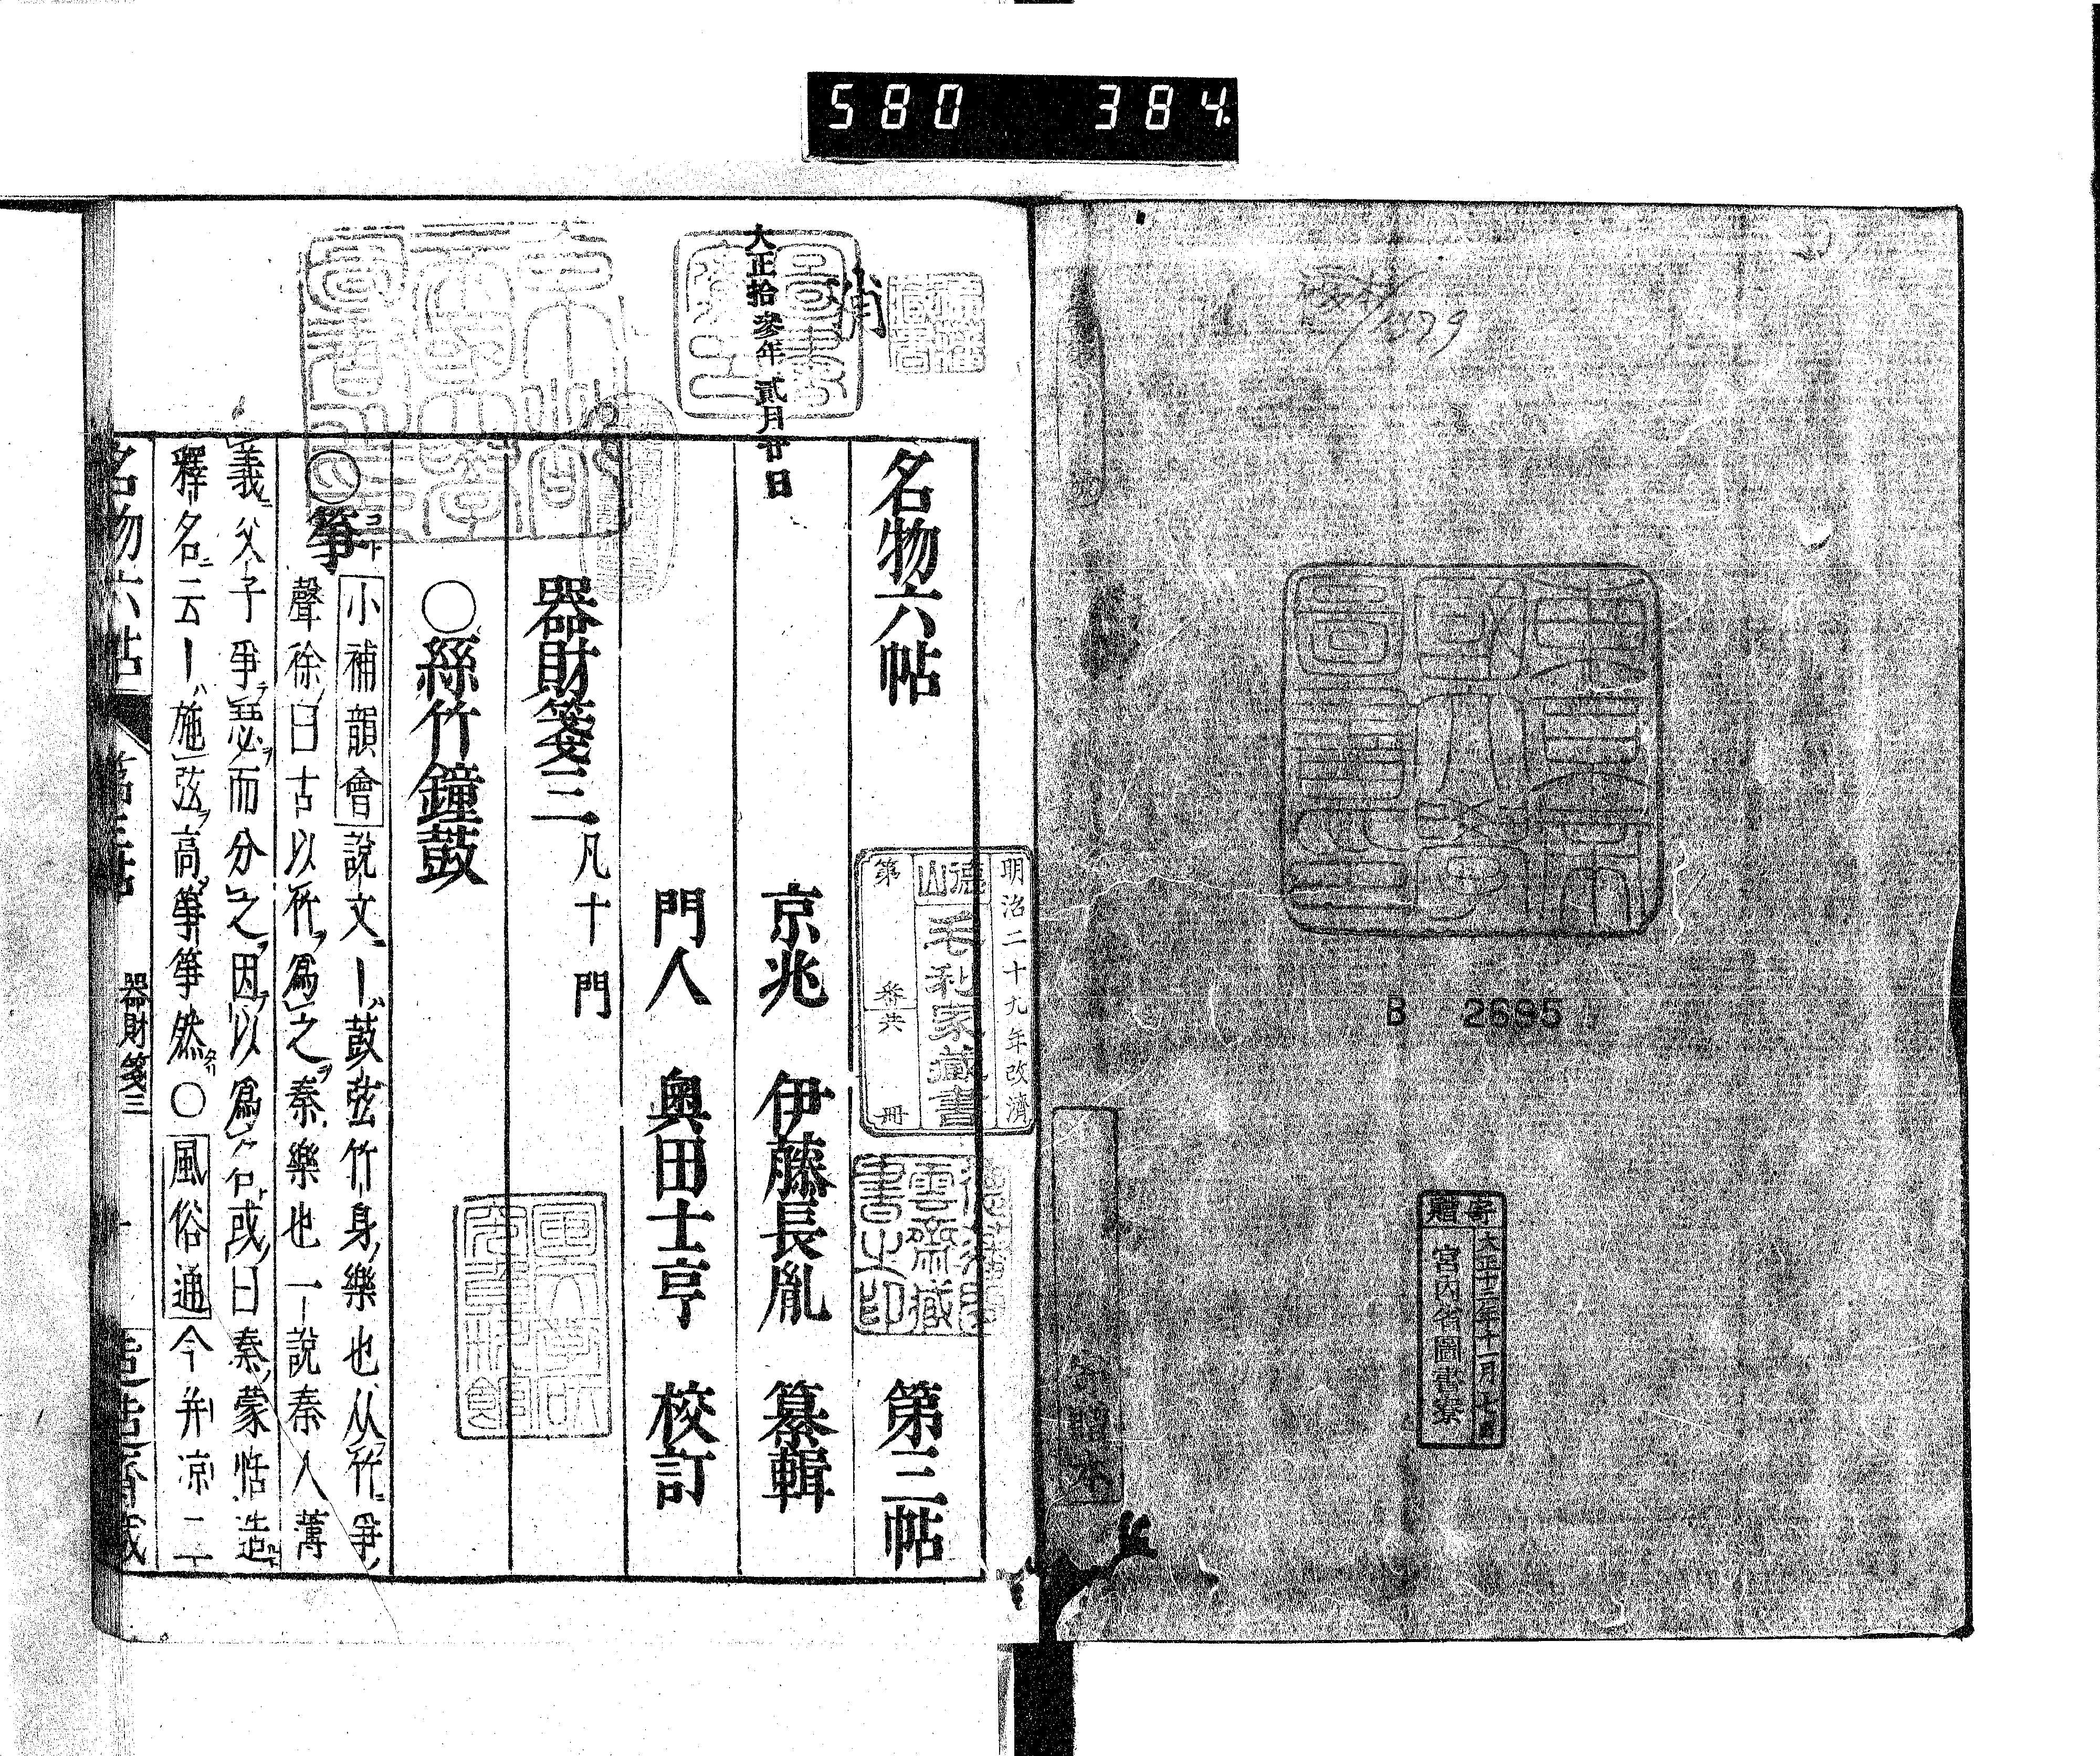 580 384
1479
B 2695
寄贈
大正十三年十一月七日
宮内省圖書寮
寄贈本
明治二十九年改濟
德山
毛利家藏書
第 番共 冊
大正拾參年貳月廿日
名物六帖 第三帖
京兆 伊藤長胤 纂輯
門人 奧田士亨 校訂
器財箋三 凡十門
○絲竹鐘鼓
○箏 コト 小補韻會 說文ー鼓弦竹身樂也从竹爭
聲徐曰古以竹爲之秦樂也一說秦人薄
義父子爭瑟而分之因以爲名或曰秦蒙恬造
釋名云ー施弦高箏箏然○風俗通今并涼二
名物六帖 第三帖 器財箋三 一